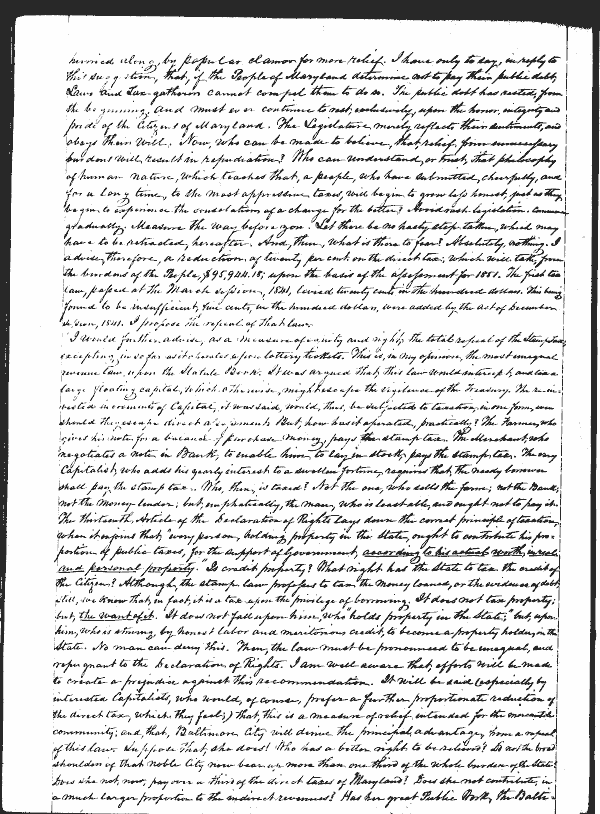 hurried along, by popular clamor for more relief. I have only to say, in reply to
this suggestion, that, if the People of Maryland determine not to pay their public debt,
Laws and Tax-gatherers cannot compel them to do so. The public debt has rested, from
the beginning, and must ever continue to rest, exclusively, upon the honor, integrity and
pride of the Citizens of Maryland. The Legislature, merely reflects their sentiments, and
obeys their will. Now, who can be made to believe, that relief, from unnecessary
burdens will, result in repudiation? Who can understand, or trust, that philosophy
of human nature, which teaches that, a people, who have submitted, cheerfully, and
for a long time, to the most oppressive taxes, will begin to grow less honest, just as they
begin to experience the consolations of a change for the better? Avoid rash legislation. Commence
gradually. Measure the way before you. Let there be no hasty step taken, which may
have to be retraced, hereafter. And, then, what is there to fear? Absolutely, nothing. I
advise, therefore, a reduction of twenty per cent. on the direct tax; which will take, from
the burdens of the People, $95,944.18, upon the basis of the assessment for 1851. The first tax
law, passed at the March session, 1841, levied twenty cents in the hundred dollars. This being
found to be insufficient, five cents, in the hundred dollars, were added by the act of December
session, 1841. I propose the repeal of that law.
I would further advise, as a measure of equity and right, the total repeal of the Stamp Tax,
excepting, in so far as it operates upon lottery tickets. This is, in my opinion, the most unequal
revenue law, upon the Statute Book. It was argued that, this law would intercept, and tax a
large floating capital, which, otherwise, might escape the vigilance of the Treasury. The re-in-
vested increments of Capital, it was said, would, thus, be subjected to taxation, in one form, were
should they escape direct assessment. But, how has it operated, practically? The Farmer, who
gives his note, for a balance of purchase money, pays the stamp tax. The Merchant, who
negotiates a note in Bank, to enable him, to lay in stock, pays the stamp, tax. The very
Capitalist, who adds his yearly interest to a swollen fortune, requires that, the needy borrower
shall pay the stamp tax. Who, then, is taxed? Not the one, who sells the farm; not the Bank;
not the Money-lender; but, emphatically, the man, who is least able, and ought not to pay it.
The thirteenth Article of the Declaration of Rights lays down the correct principle of taxation,
when it enjoins that, "every person, holding property in the State, ought to contribute his pro-
portion of public taxes, for the support of Government, according to his actual worth, in real
and personal property. Is credit property? What right has the State to tax the credit of
the Citizen? Although, the stamp law professes to tax the money loaned, or the evidence of debt,
still, we know that, in fact, it is a tax upon the privilege of borrowing. It does not tax property;
but, the want of it. It does not fall upon him, who "holds property in the State;" but, upon
him, who is striving, by honest labor and meritorious credit, to become a property holder, in the
State. No man can deny this. Then, the law must be pronounced to be unequal, and
repugnant to the Declaration of Rights. I am well aware that, efforts will be made
to create a prejudice against this recommendation. It will be said (especially, by
interested Capitalists, who would, of course, prefer a further proportionate reduction of
the direct tax, which they feel,) that, this is a measure of relief, intended for the mercantile
community; and, that, Baltimore City will derive the principal advantage, from a repeal
of this law. Suppose that, she does! Who has a better right to be relieved? Do not the broad
shoulders of that noble City now bear up more than one third of the whole burden of the State?
Does she not, now, pay over a third of the direct taxes of Maryland? Does she not contribute, in
a much larger proportion to the indirect revenues? Has her great Public Work, the Balti-